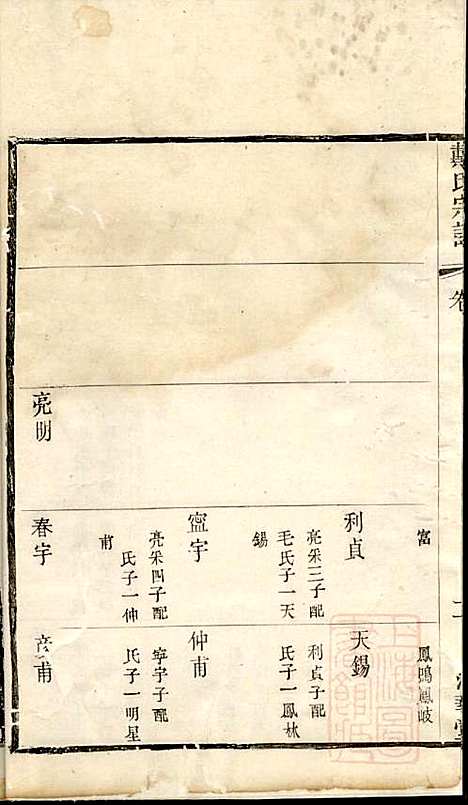 戴氏宗譜
卷
富
利貞
亮采三子配
毛氏子一天
錫
寍宇
亮采四子配
氏子一仲
甫
亮明
春宇
鳳鳴鳳岐
天錫
利貞子配
氏子一鳳林
仲甫
寧宇子配
氏子一明星
彦甫
上海圖
書館藏